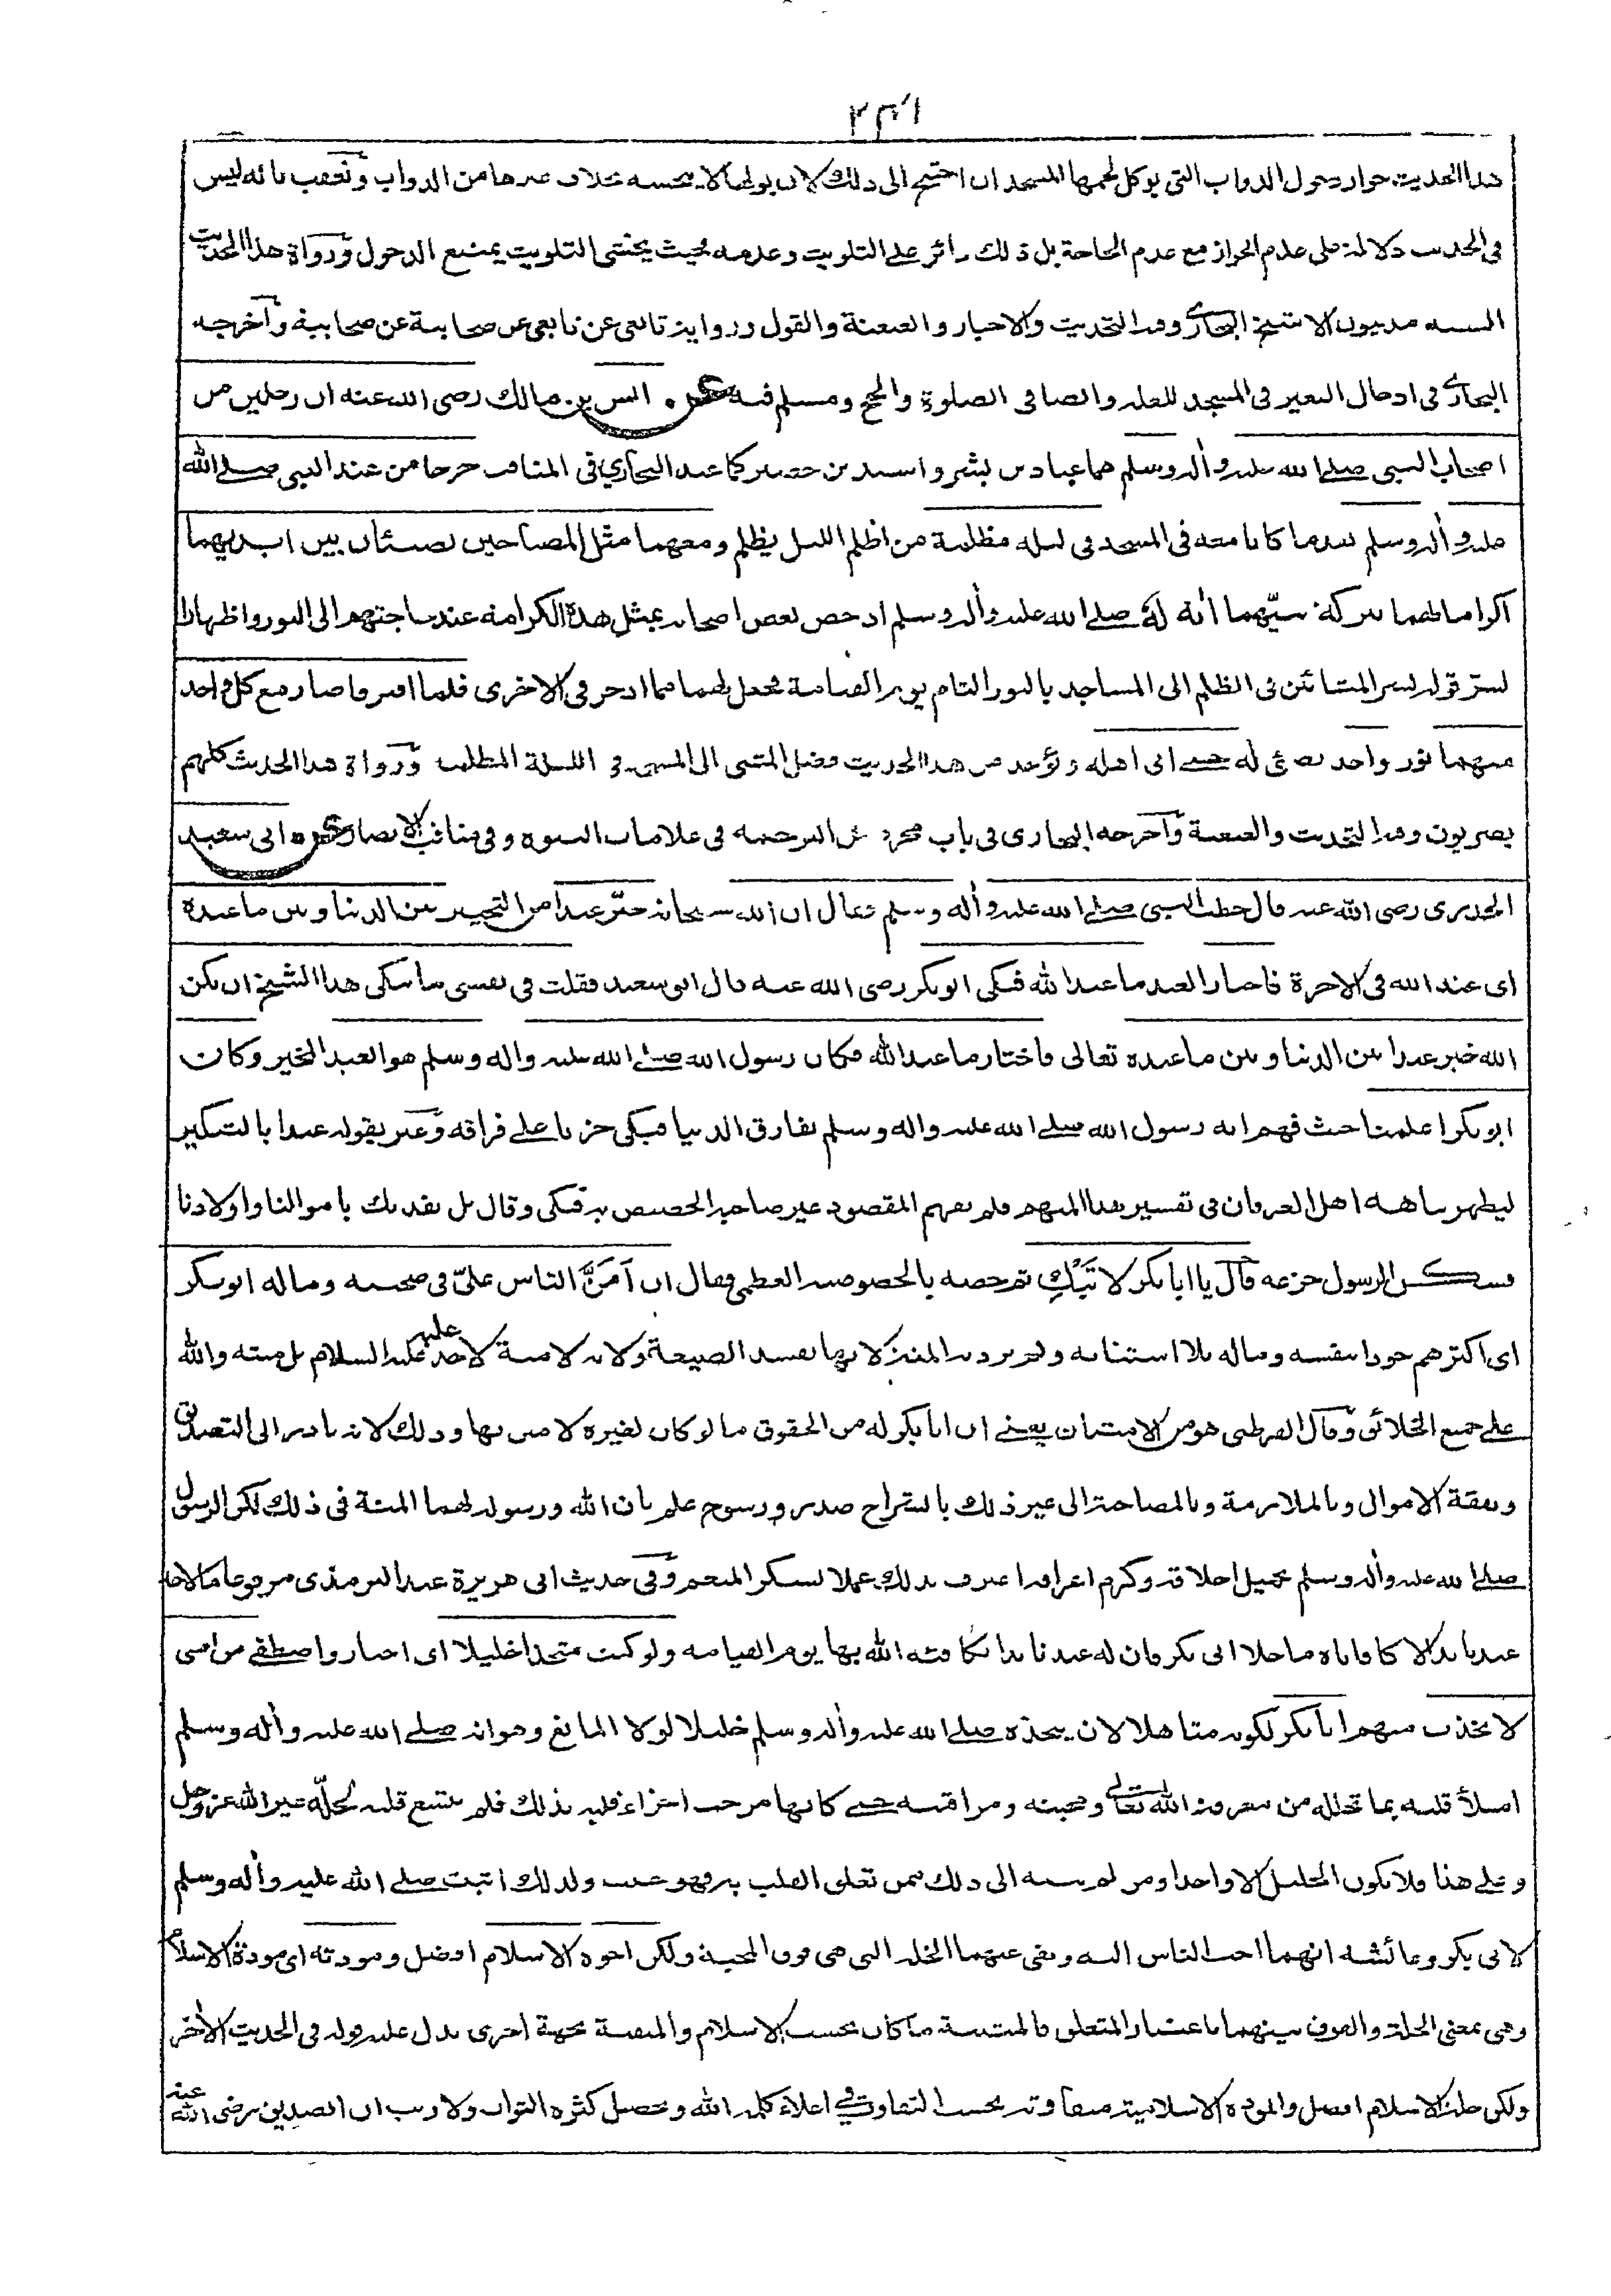 ٢٣١
هذا الحديث جواز دخول الدواب التي يوكل لحمها المسجد ان احتيج الى ذلك لان بولها لا ينجسه بخلاف غيرها من الدواب وتعقب بانه ليس
في الحديث دلالة على عدم الجواز مع عدم الحاجة بل ذلك دائر على التلويث وعدمه فحيث يخشى التلويث يمتنع الدخول ورواة هذا الحديث
الستة مدنيون الا شيخ البخاري وفيه التحديث والاخبار والعنعنة والقول ورواية تابعي عن تابعي عن صحابية عن صحابية وأخرجه
البخاري في ادخال البعير في المسجد للعلة وايضا في الصلوة والحج ومسلم فيه عن انس بن مالك رضى الله عنه ان رجلين من
اصحاب النبي صلى الله عليه وأله وسلم هما عباد بن بشر واسيد بن حضير كما عند البخاري في المناقب خرجا من عند النبي صلى الله
عليه وأله وسلم بعدما كانا معه في المسجد في ليلة مظلمة من اظلم الليل يظلم ومعهما مثل المصباحين يضيئان بين ايديهما
اكراما لهما ببركة نبيهما أية له صلى الله عليه وأله وسلم اذ خص بعض اصحابه بمثل هذه الكرامة عند حاجتهم الى النور واظهارا
لسر قوله بشر المشائين في الظلم الى المساجد بالنور التام يوم القيامة فعجل لهما مما ادخر في الاخرى فلما افترقا صار مع كل واحد
منهما نور واحد يضئ له حتى اتى اهله ويؤخذ من هذا الحديث فضل المشى الى المسجد في الليلة المظلمة ورواة هذا الحديث كلهم
بصريون وفيه التحديث والعنعنة وأخرجه البخاري في باب مجرد عن الترجمة في علامات النبوه وفي مناقب الانصار عن ابي سعيد
الخدري رضى الله عنه قال خطب النبي صلى الله عليه وأله وسلم فقال ان الله سبحانه خيّر عبدا من التخيير بين الدنيا وبين ما عنده
اى عند الله في الاخرة فاختار العبد ما عند الله فبكى ابو بكر رضى الله عنه قال ابو سعيد فقلت في نفسي ما يبكى هذا الشيخ ان يكن
الله خير عبدا بين الدنيا وبين ما عنده تعالى فاختار ما عند الله فكان رسول الله صلى الله عليه واله وسلم هو العبد المخير وكان
ابو بكر اعلمنا حيث فهم انه رسول الله صلى الله عليه واله وسلم يفارق الدنيا فبكى حزنا على فراقه وعبر بقوله عبدا بالتنكير
ليظهر نباهة اهل العرفان في تفسير هذا المبهم فلم يفهم المقصود غير صاحبه الخصيص به فبكى وقال بل نفديك باموالنا واولادنا
فسكن الرسول جزعه قال يا ابا بكر لا تَبْكِ ثم خصه بالخصوصية العظمى فقال ان اَمَنَّ الناس عليّ في صحبته وماله ابو بكر
اى اكثرهم جودا بنفسه وماله بلا استثابه ولم يرد به المنة لانها تفسد الصنيعة ولانه لا منة لاحد عليه عليه السلام بل منته والله
على جميع الخلائق وقال القرطبي هو من الامتنان يعني ان ابا بكر له من الحقوق ما لو كان لغيره لامتن بها وذلك لانه بادر الى التصديق
ونفقة الاموال وبالملازمة وبالمصاحبة الى غير ذلك بانشراح صدر ورسوخ علم بان الله ورسوله لهما المنة في ذلك لكن الرسول
صلى الله عليه وأله وسلم بجميل اخلاقه وكرم اعراقه اعترف بذلك عملا بشكر المنعم وفي حديث ابي هريرة عند الترمذي مرفوعا ما لاحد
عندنا يد الا كافاناه ما خلا ابي بكر فان له عندنا يدا يكافئه الله بها يوم القيامه ولو كنت متخذا خليلا اى اختار واصطفى من امتى
لاتخذت منهم ابا بكر لكونه متاهلا لان يتخذه صلى الله عليه وأله وسلم خليلا لولا المانع وهو انه صلى الله عليه وأله وسلم
امتلأ قلبه بما تخلله من معرفة الله تعالى ومحبته ومراقبته حتى كانها مزجت اجزاء قلبه بذلك فلم يتسع قلبه لخلة غير الله عز وجل
وعلى هذا فلا يكون الخليل الا واحدا ومن لم ينته الى ذلك ممن تعلق القلب به فهو حبيب ولذلك اثبت صلى الله عليه وأله وسلم
لابي بكر وعائشه انهما احب الناس اليه ونفى عنهما الخلة التي هي فوق المحبة ولكن اخوة الاسلام افضل ومودته اى مودة الاسلام
وهي بمعنى الخلة والفرق بينهما باعتبار المتعلق فالمثبتة ما كان بحسب الاسلام والمنفية بجهة اخرى يدل عليه قوله في الحديث الأخر
ولكن خلة الاسلام افضل والمودة الاسلامية متفاوتة بحسب التفاوت في اعلاء كلمة الله وتحصيل كثرة الثواب ولا ريب ان الصديق رضى الله عنه